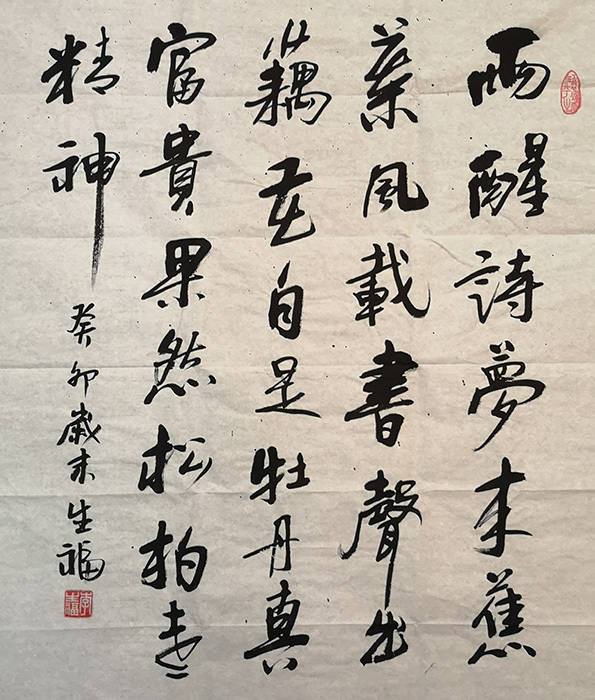 雨醒詩夢来蕉
葉風載書聲出
藕花自是牡丹真
富貴果然松柏老
精神
癸卯歲末生福